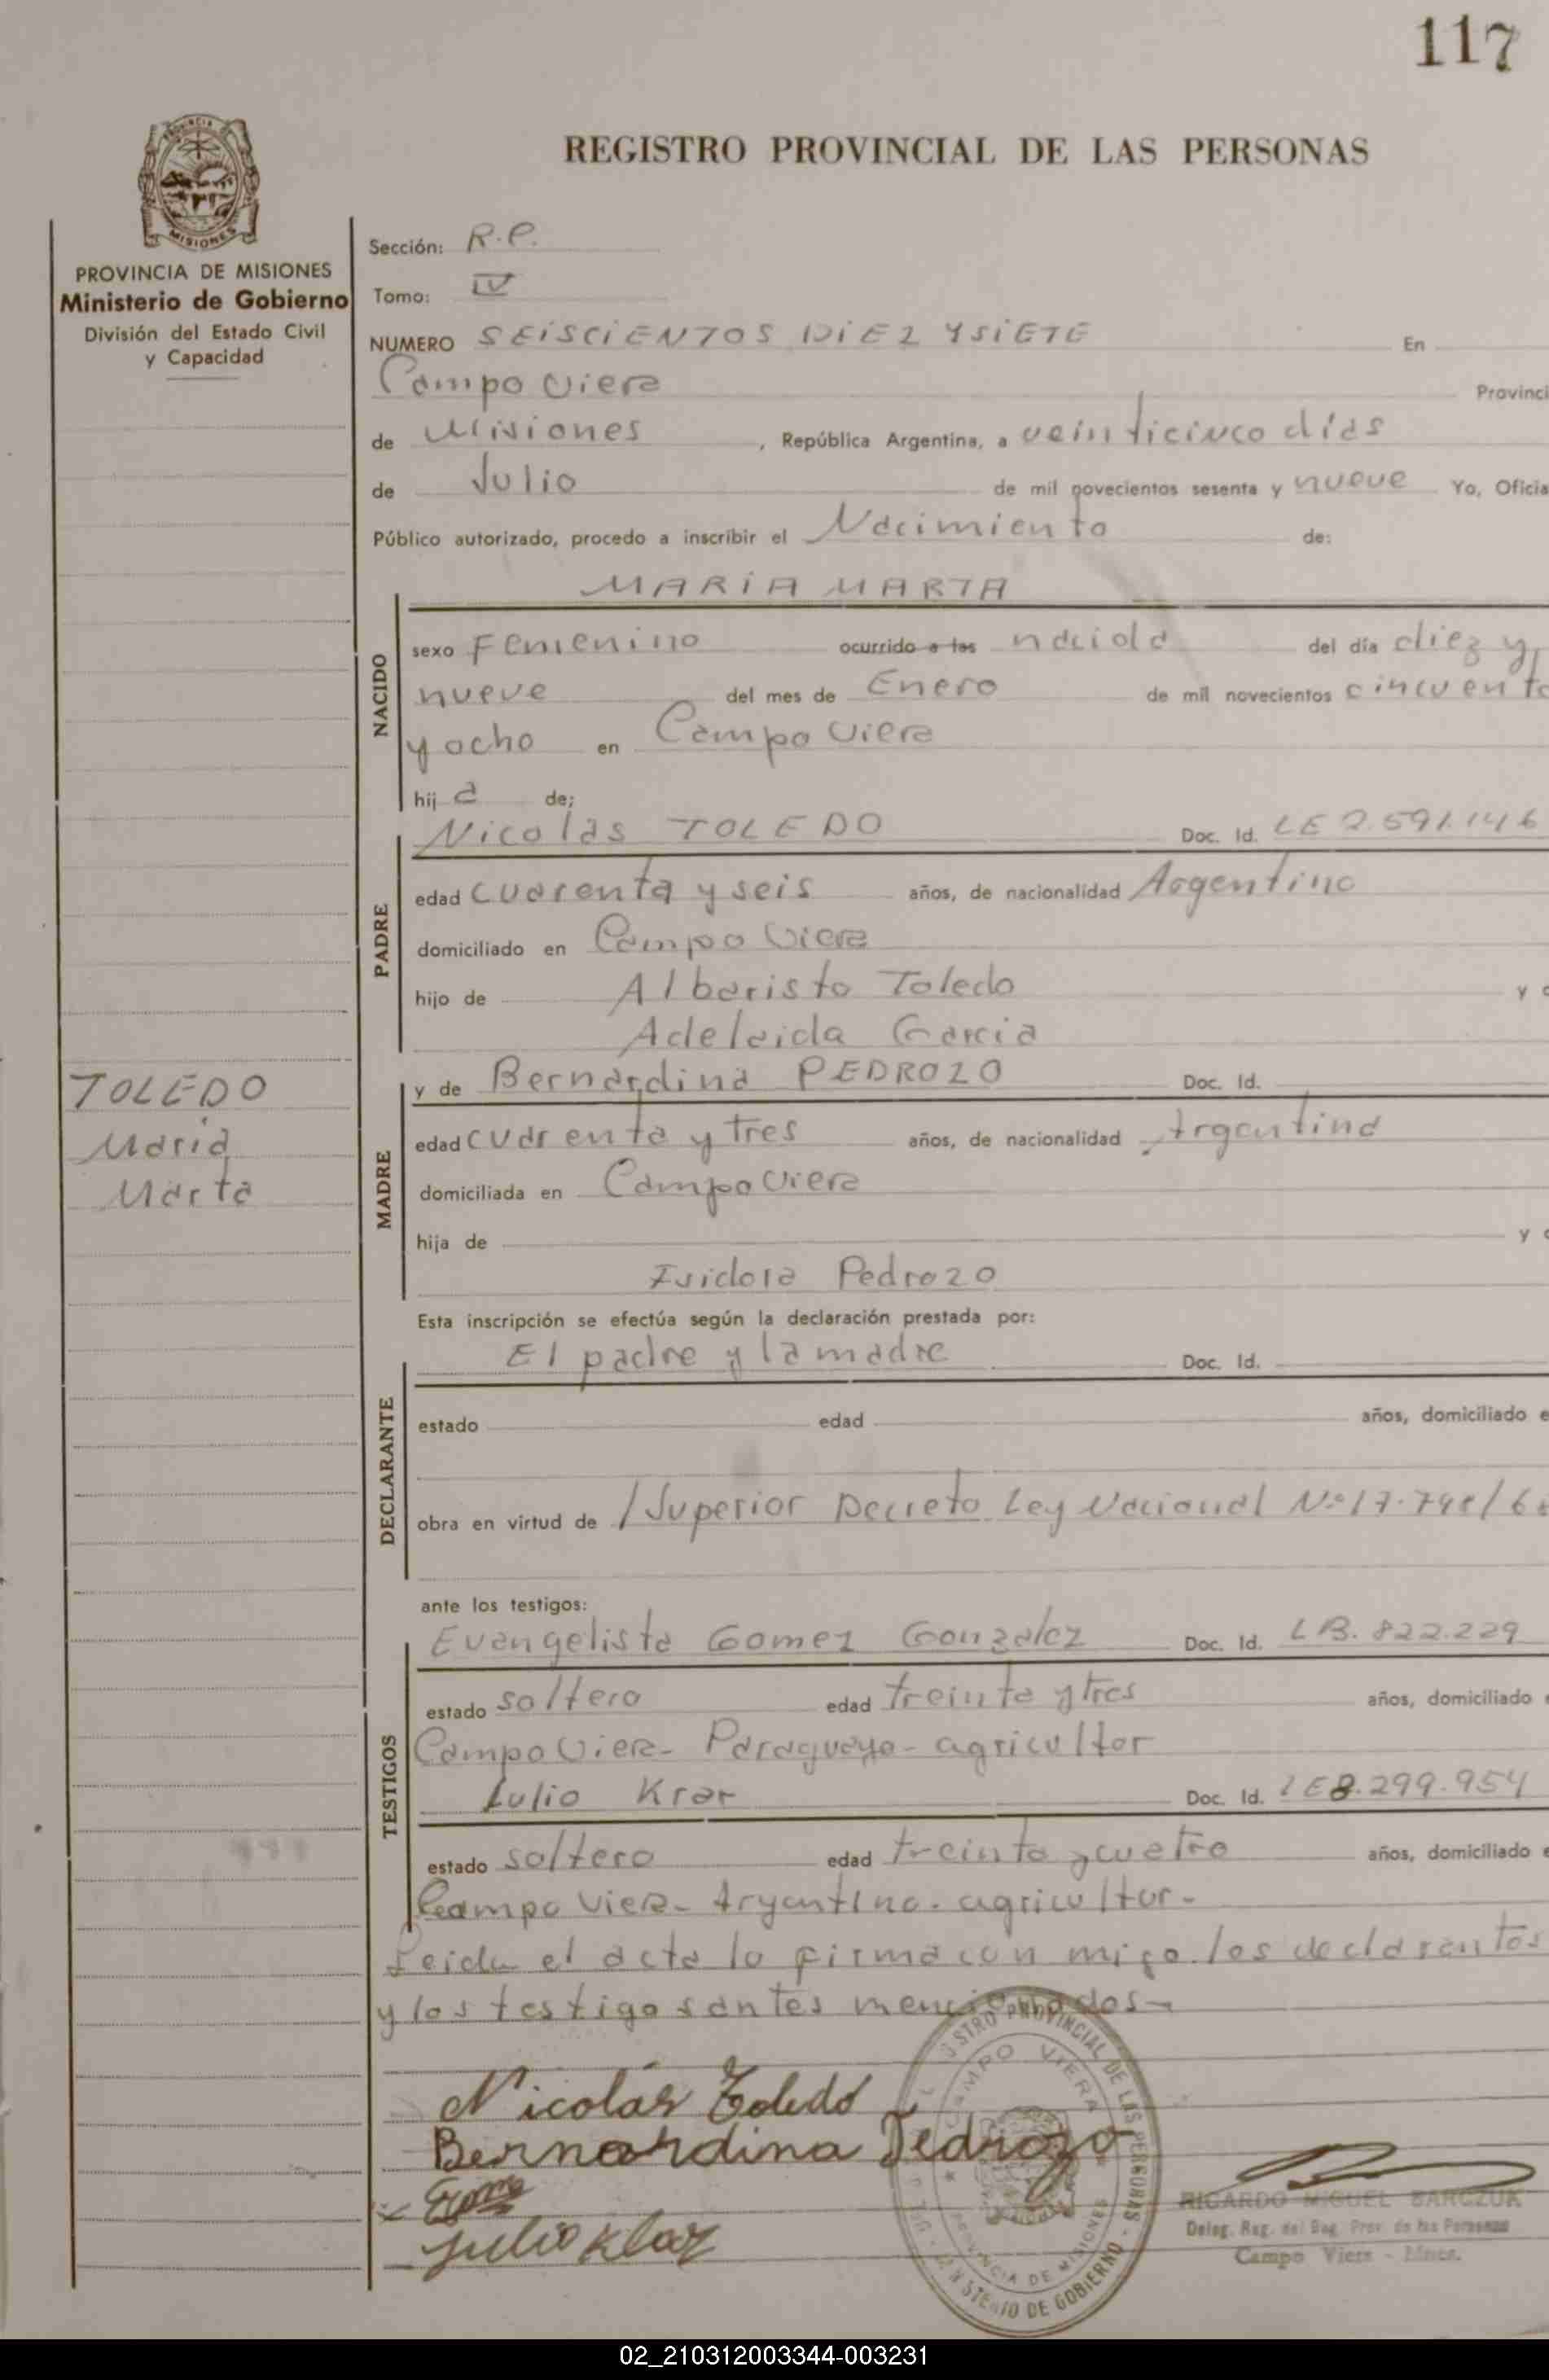 117
REGISTRO PROVINCIAL DE LAS PERSONAS
PROVINCIA DE MISIONES
Ministerio de Gobierno
División del Estado Civil
y Capacidad
Sección: R.P.
Tomo: IV
NUMERO SEISCIENTOS DIEZ Y SIETE En
Campo Viera Provinci
de Misiones, República Argentina, a veinticinco días
de Julio de mil novecientos sesenta y nueve Yo, Oficia
Público autorizado, procedo a inscribir el Nacimiento de:
MARIA MARTA
NACIDO
sexo Femenino ocurrido a las nacida del día diez y
nueve del mes de Enero de mil novecientos cincuenta
y ocho en Campo Viera
hija de;
PADRE
Nicolás TOLEDO Doc. Id. LE 2.591.146
edad cuarenta y seis años, de nacionalidad Argentino
domiciliado en Campo Viera
hijo de Albaristo Toledo y
Adelaida Garcia
TOLEDO
Maria
Marta
MADRE
y de Bernardina PEDROZO Doc. Id.
edad cuarenta y tres años, de nacionalidad Argentina
domiciliada en Campo Viera
hija de y
Isidora Pedrozo
Esta inscripción se efectúa según la declaración prestada por:
DECLARANTE
El padre y la madre Doc. Id.
estado edad años, domiciliado e
obra en virtud de /Superior Decreto Ley Nacional Nº
ante los testigos:
TESTIGOS
Evangelista Gomez Gonzalez Doc. Id. LB. 822.229
estado soltero edad treinta y tres años, domiciliado
Campo Viera- Paraguayo- agricultor
Julio Krar Doc. Id. LE 8.299.954
estado soltero edad treinta y cuatro años, domiciliado e
Campo Viera- Argentino. agricultor-
Leida el acta la firma con migo los declarantes
y los testigos antes mencionados-
Nicolás Toledo
Bernardina Pedrozo
REGISTRO PROVINCIAL DE LAS PERSONAS - MINISTERIO DE GOBIERNO
CAMPO VIERA
PROVINCIA DE MISIONES
RICARDO MIGUEL BARCZUK
Deleg. Reg. del Reg. Prov. de las Personas
Campo Viera - Mnes.
02_210312003344-003231